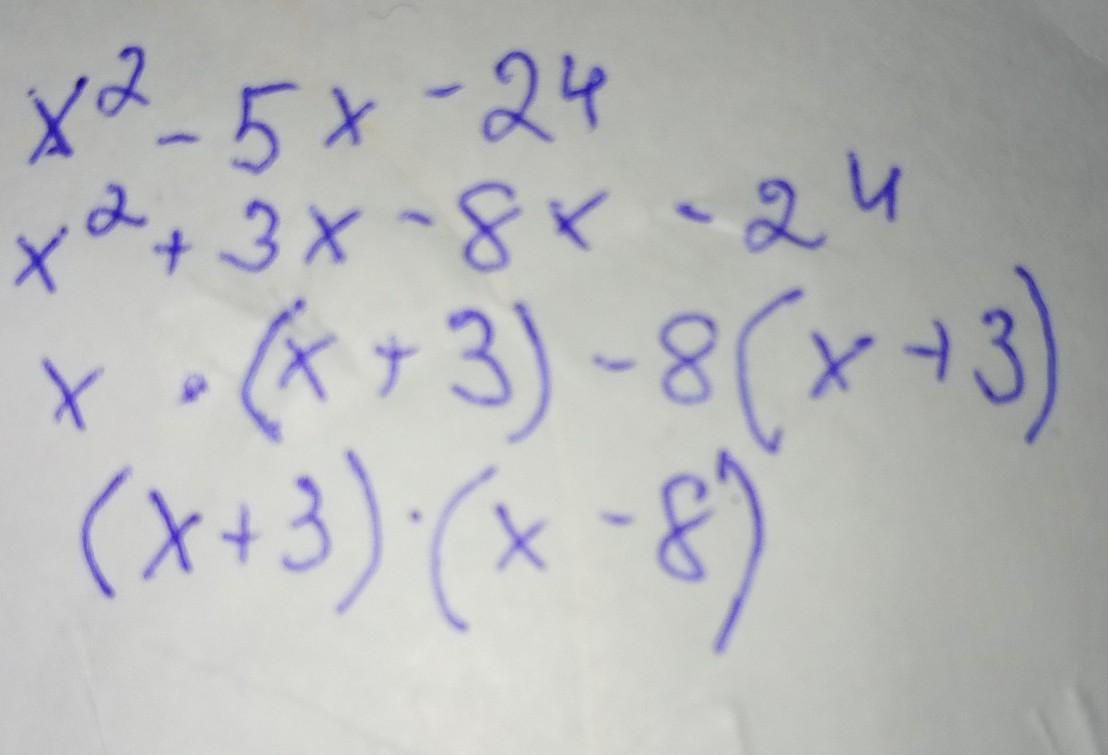 x² - 5x - 24
x² + 3x - 8x - 24
x · (x + 3) - 8(x + 3)
(x + 3) · (x - 8)